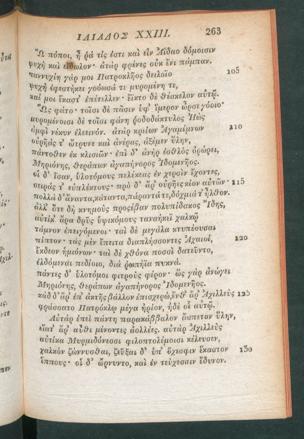 ΙΛΙΑΔΟΣ XXIII. 263
Ὢ πόποι, ἦ ῥά τίς ἐστι καὶ εἰν Ἀΐδαο δόμοισιν
ψυχὴ καὶ εἴδωλον· ἀτὰρ φρένες οὐκ ἔνι πάμπαν.
παννυχίη γάρ μοι Πατροκλῆος δειλοῖο 105
ψυχὴ ἐφεστήκει γοόωσά τε μυρομένη τε,
καί μοι ἕκαστ' ἐπέτελλεν· ἔϊκτο δὲ θέσκελον αὐτῷ.
Ὣς φάτο· τοῖσι δὲ πᾶσιν ὑφ' ἵμερον ὦρσε γόοιο·
μυρομένοισι δὲ τοῖσι φάνη ῥοδοδάκτυλος Ἠὼς
ἀμφὶ νέκυν ἐλεεινόν. ἀτὰρ κρείων Ἀγαμέμνων 110
οὐρῆάς τ' ὤτρυνε καὶ ἀνέρας, ἀξέμεν ὕλην,
πάντοθεν ἐκ κλισιῶν· ἐπὶ δ' ἀνὴρ ἐσθλὸς ὀρώρει,
Μηριόνης, θεράπων ἀγαπήνορος Ἰδομενῆος.
οἱ δ' ἴσαν, ὑλοτόμους πελέκεας ἐν χερσὶν ἔχοντες,
σειράς τ' εὐπλέκτους· πρὸ δ' ἄρ' οὐρῆες κίον αὐτῶν· 115
πολλὰ δ' ἄναντα, κάταντα, πάραντά τε, δόχμιά τ' ἦλθον.
ἀλλ' ὅτε δὴ κνημοὺς προσέβαν πολυπίδακος Ἴδης,
αὐτίκ' ἄρα δρῦς ὑψικόμους ταναήκεϊ χαλκῷ
τάμνον ἐπειγόμενοι· ταὶ δὲ μεγάλα κτυπέουσαι
πίπτον· τὰς μὲν ἔπειτα διαπλήσσοντες Ἀχαιοί, 120
ἔκδεον ἡμιόνων· ταὶ δὲ χθόνα ποσσὶ δατεῦντο,
ἐλδόμεναι πεδίοιο, διὰ ῥωπήϊα πυκνά.
πάντες δ' ὑλοτόμοι φιτροὺς φέρον· ὣς γὰρ ἀνώγει
Μηριόνης, θεράπων ἀγαπήνορος Ἰδομενῆος.
κὰδ δ' ἄρ' ἐπ' ἀκτῆς βάλλον ἐπισχερώ, ἔνθ' ἄρ' Ἀχιλλεὺς 125
φράσσατο Πατρόκλῳ μέγα ἠρίον, ἠδὲ οἷ αὐτῷ.
Αὐτὰρ ἐπεὶ πάντη παρακάββαλον ἄσπετον ὕλην,
εἵατ' ἄρ' αὖθι μένοντες ἀολλέες. αὐτὰρ Ἀχιλλεὺς
αὐτίκα Μυρμιδόνεσσι φιλοπτολέμοισι κέλευσεν,
χαλκὸν ζώννυσθαι, ζεῦξαι δ' ὑπ' ὄχεσφιν ἕκαστον 130
ἵππους· οἱ δ' ὤρνυντο, καὶ ἐν τεύχεσσιν ἔδυνον.